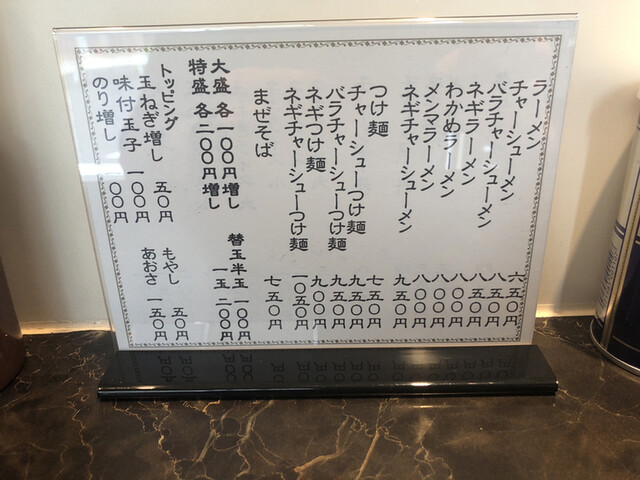 ラーメン 六五〇円
チャーシューメン 八五〇円
バラチャーシューメン 八五〇円
ネギラーメン 八〇〇円
わかめラーメン 八〇〇円
メンマラーメン 八〇〇円
ネギチャーシューメン 九五〇円
つけ麺 七五〇円
チャーシューつけ麺 九五〇円
バラチャーシューつけ麺 九五〇円
ネギつけ麺 九〇〇円
ネギチャーシューつけ麺 一〇五〇円
まぜそば 七五〇円
大盛 各 一〇〇円増し
特盛 各 二〇〇円増し
替玉半玉 一〇〇円
一玉 二〇〇円
トッピング
玉ねぎ増し 五〇円
味付玉子 一〇〇円
のり増し 一〇〇円
もやし 五〇円
あおさ 一五〇円